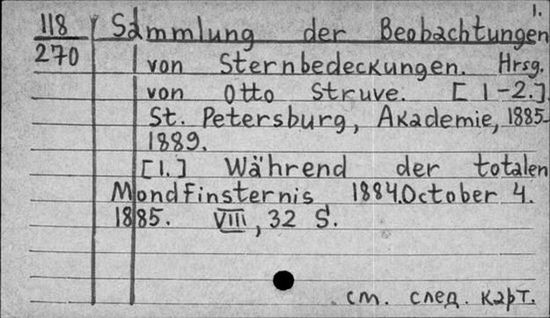 1.
118
270
Sammlung der Beobachtungen
von Sternbedeckungen. Hrsg.
von Otto Struve. [1-2.]
St. Petersburg, Akademie, 1885-
1889.
[1.] Während der totalen
Mondfinsternis 1884.October 4.
1885. VIII, 32 S.
см. след. карт.